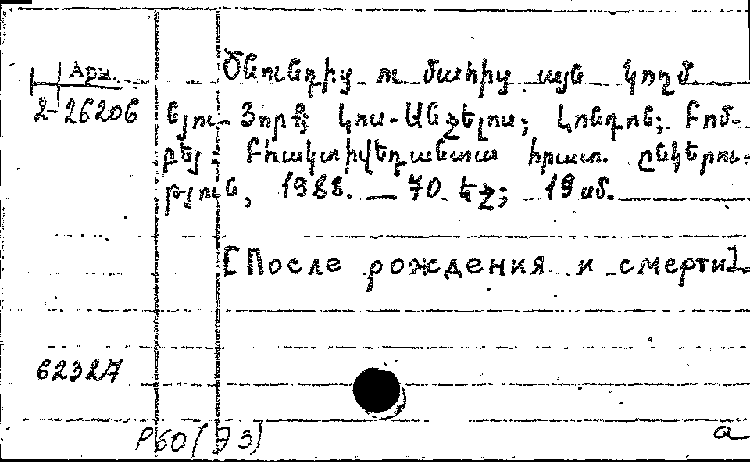 Арм.
2-26206
Ծննդից ու մահից այն կողմ.
Նյու-Յորք; Լոս-Անջելոս; Լոնդոն; Բոմ-
բեյ: Բհակտիվեդանտա հրատ. ընկերու-
թյուն, 1988. — 70 էջ; 19 սմ.
[После рождения и смерти].
62327
Р60(93) а